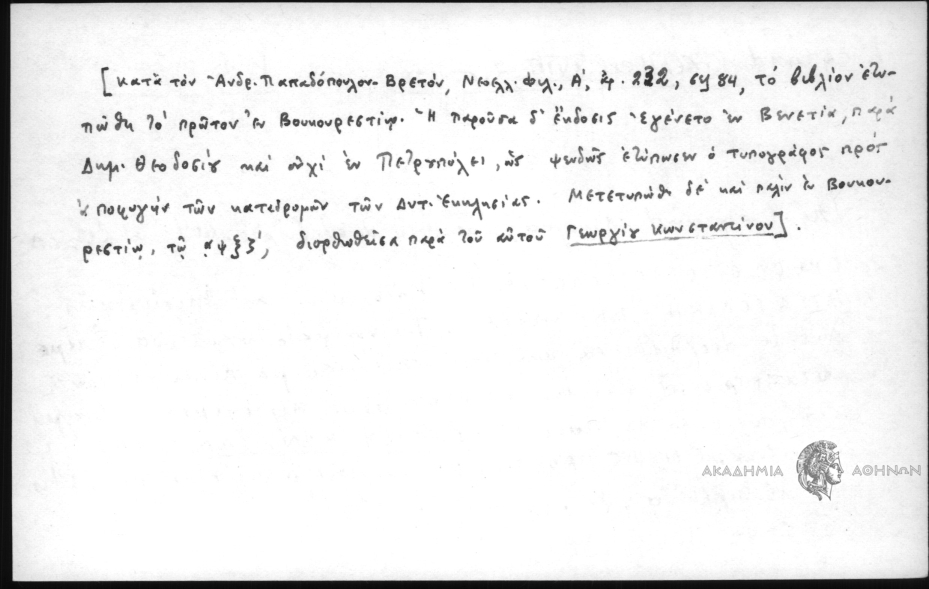 [κατὰ τὸν Ἀνδρ. Παπαδόπουλον Βρετόν, Νεοελλ. Φιλ., Α', 232, 84, τὸ βιβλίον ἐτυ-
πώθη τὸ πρῶτον ἐν Βουκουρεστίῳ. Ἡ παροῦσα δ' ἔκδοσις ἐγένετο ἐν Βενετίᾳ, παρὰ
Δημ. Θεοδοσίου καὶ οὐχὶ ἐν Πετρουπόλει, ὡς ψευδῶς ἐτύπωσεν ὁ τυπογράφος πρὸς
ἀποφυγὴν τῶν καταδρομῶν τῶν Δυτ. Ἐκκλησίας. Μετετυπώθη δὲ καὶ πάλιν ἐν Βουκου-
ρεστίῳ, τῷ διορθωθεῖσα παρὰ τοῦ αὐτοῦ Γεωργίου Κωνσταντίνου].
ΑΚΑΔΗΜΙΑ ΑΘΗΝΩΝ